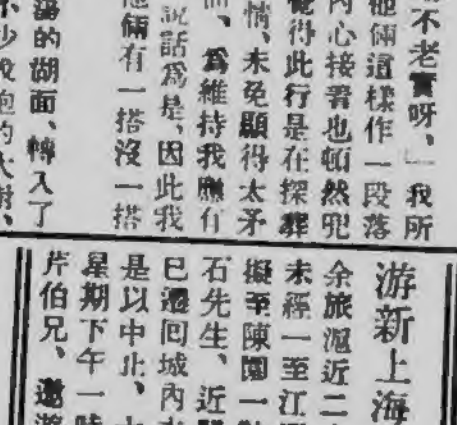 不老實呀、」我所
他倆這樣作一段落
內心接着也頓然
覺得此行是在探
情、未免顯得太矛
爲維持我應有
說話爲是、因此我
他倆有一搭沒一搭
蕩的湖面、轉入了
不少
的大樹、
游新上海
余旅滬近二
未經一至江
擬至陳園一
石先生、近
已遷回城內
是以中止、
星期下午一時
芹伯兄、邀游